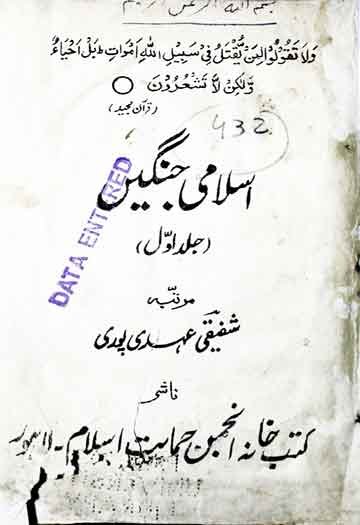 بسم اللہ الرحمن الرحیم
وَلَا تَقُولُوا لِمَنْ يُقْتَلُ فِي سَبِيلِ اللّٰهِ اَمْوَاتٌ ؕ بَلْ اَحْيَاءٌ
وَّلٰكِنْ لَّا تَشْعُرُوْنَ ○
(قرآن مجید)
432
اسلامی جنگیں
DATA ENTERED
(جلد اوّل)
مرتبہ
شفیقؔ عہدی پوری
ناشر
کتب خانہ انجمن حمایت اسلام۔ لاہور